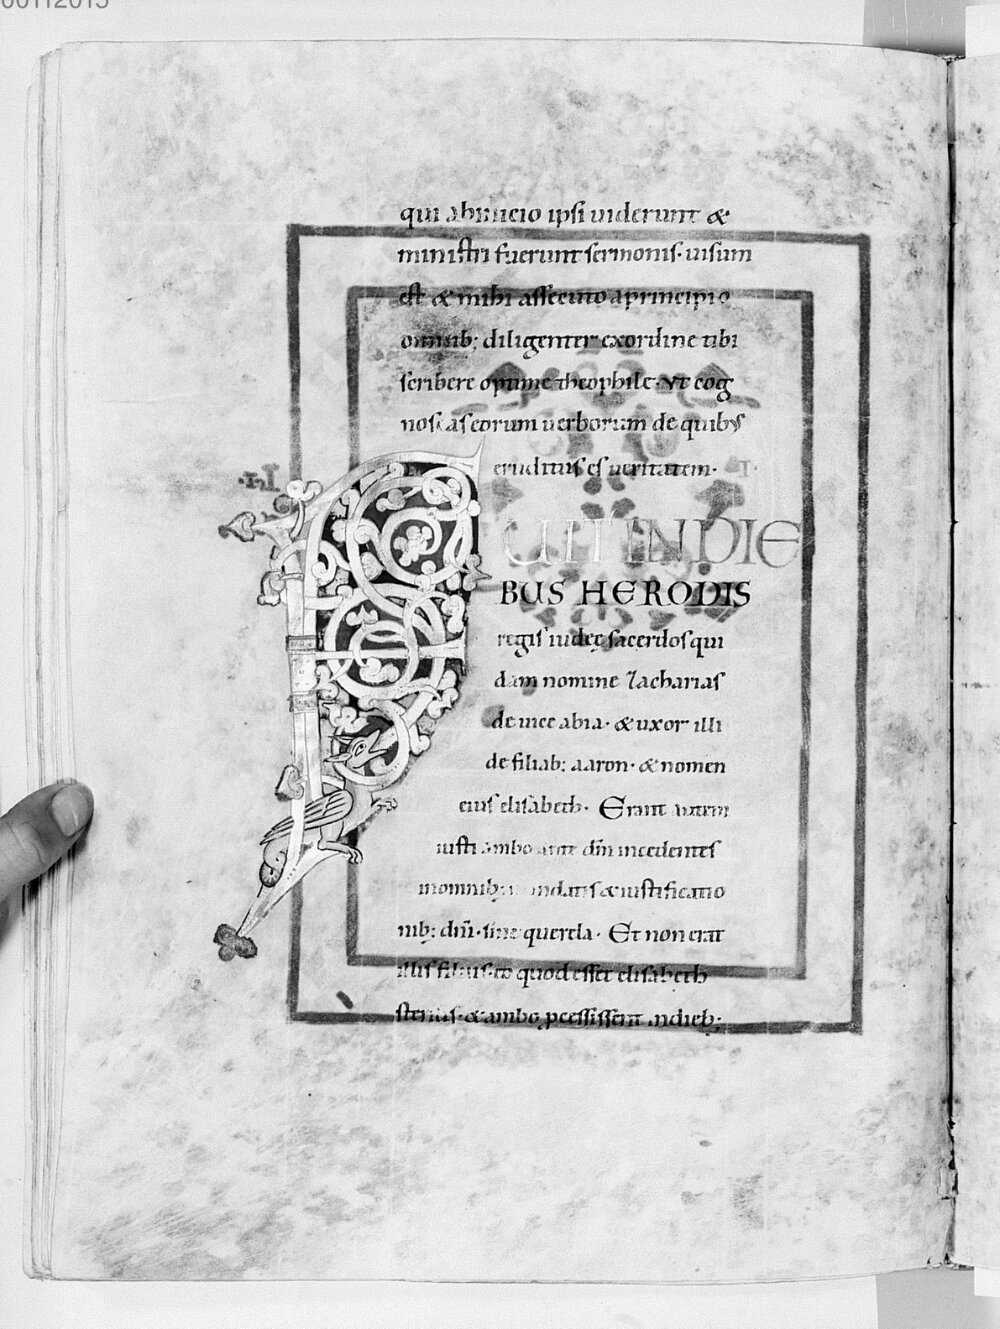 00112015
qui ab initio ipsi uiderunt &
ministri fuerunt sermonis· uisum
est & mihi assecuto a principio
omnib; diligenter ex ordine tibi
scribere optime theophile· Vt cog
noscas eorum uerborum de quibus
eruditus es ueritatem· I·
FUIT IN DIE
BUS HERODIS
regis iudeę sacerdos qui
dam nomine Zacharias
de uice abia· & uxor illi
de filiab; aaron· & nomen
eius elisabeth· Erant autem
iusti ambo ante dm̄ incedentes
in omnib; mandatis & iustificatio
nib; dn̄i· sine querela· Et non erat
illis filius· eo quod esset elisabeth
sterilis· & ambo pcessissent in dieb;